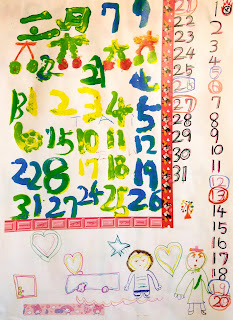 月 7 9
2 3 4 5
15 10 11 12
22 8 17 18 19
31 27 24 25 26
21
22
23
24
25
26
27
28
29
30
31
1
2
3
4
5
6
7
8
9
10
11
12
13
14
15
16
17
18
19
20